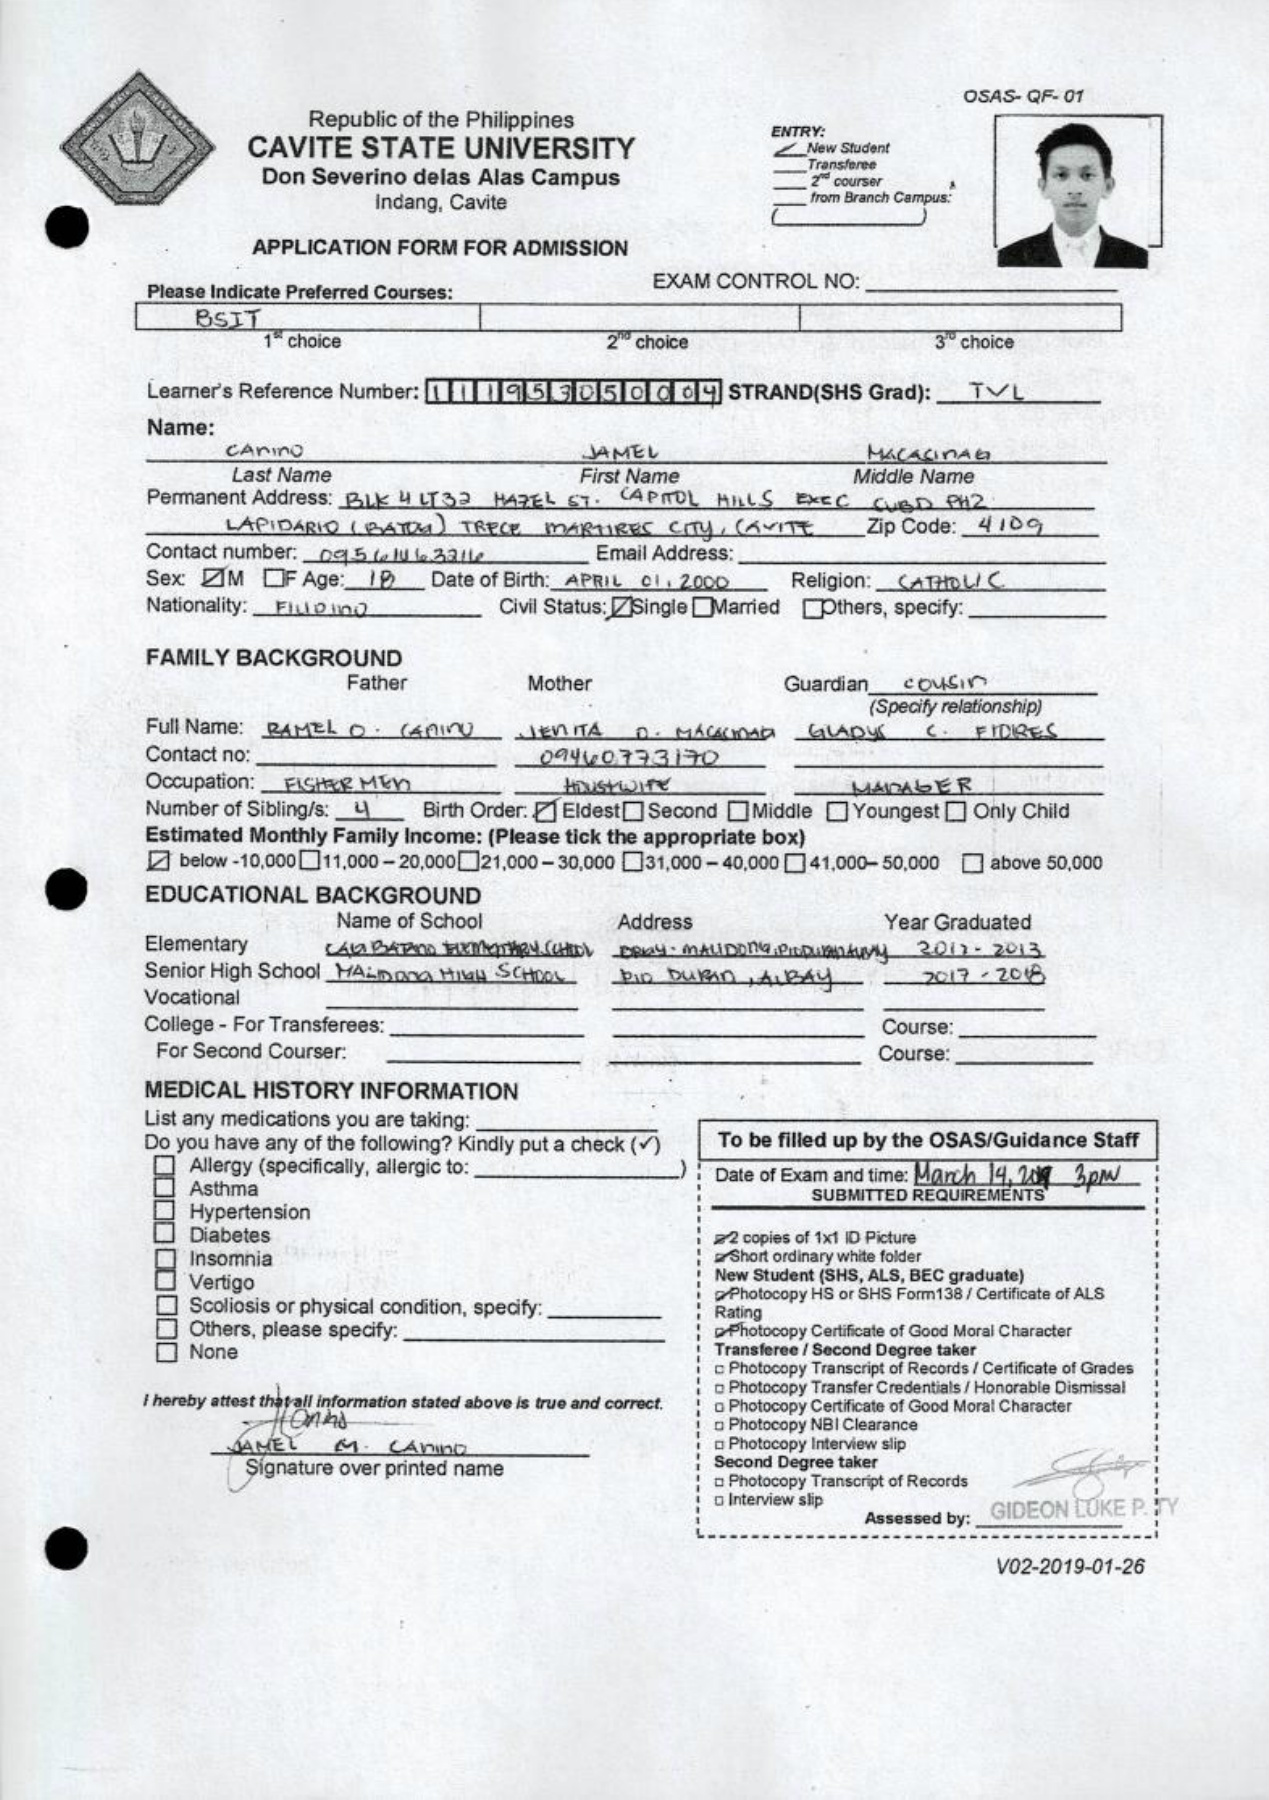 OSAS- QF- 01
Republic of the Philippines
CAVITE STATE UNIVERSITY
Don Severino delas Alas Campus
Indang, Cavite
ENTRY:
New Student
Transferee
2nd courser
from Branch Campus:
APPLICATION FORM FOR ADMISSION
EXAM CONTROL NO:
Please Indicate Preferred Courses:
BSIT
1st choice 2nd choice 3rd choice
Learner's Reference Number: 111953050004 STRAND(SHS Grad): TVL
Name:
CANINO JAMEL MACALINAG
Last Name First Name Middle Name
Permanent Address: BLK 4 LT32 HAZEL ST. CAPITOL HILLS EXEC SUBD PH2
LAPIDARIO TRECE MARTIRES CITY, CAVITE Zip Code: 4109
Contact number: Email Address:
Sex: M F Age: 18 Date of Birth: APRIL 01, 2000 Religion: CATHOLIC
Nationality: FILIPINO Civil Status: Single Married Others, specify:
FAMILY BACKGROUND
Father Mother Guardian COUSIN
(Specify relationship)
Full Name: RAMEL O. CANINO JENITA D. MACALINAG GLADYS C. FIDRES
Contact no: 09460773170
Occupation: FISHERMEN HOUSEWIFE MANAGER
Number of Sibling/s: 4 Birth Order: Eldest Second Middle Youngest Only Child
Estimated Monthly Family Income: (Please tick the appropriate box)
below -10,000 11,000 – 20,000 21,000 – 30,000 31,000 – 40,000 41,000– 50,000 above 50,000
EDUCATIONAL BACKGROUND
Name of School Address Year Graduated
Elementary ELEMENTARY SCHOOL BRGY. MALIDONG, PIO DURAN ALBAY 2012 - 2013
Senior High School MALIDONG HIGH SCHOOL PIO DURAN, ALBAY 2017 - 2018
Vocational
College - For Transferees: Course:
For Second Courser: Course:
MEDICAL HISTORY INFORMATION
List any medications you are taking:
Do you have any of the following? Kindly put a check (✓)
Allergy (specifically, allergic to: )
Asthma
Hypertension
Diabetes
Insomnia
Vertigo
Scoliosis or physical condition, specify:
Others, please specify:
None
I hereby attest that all information stated above is true and correct.
JAMEL M. CANINO
Signature over printed name
To be filled up by the OSAS/Guidance Staff
Date of Exam and time: March 14, 2019 3pm
SUBMITTED REQUIREMENTS
2 copies of 1x1 ID Picture
Short ordinary white folder
New Student (SHS, ALS, BEC graduate)
Photocopy HS or SHS Form138 / Certificate of ALS
Rating
Photocopy Certificate of Good Moral Character
Transferee / Second Degree taker
Photocopy Transcript of Records / Certificate of Grades
Photocopy Transfer Credentials / Honorable Dismissal
Photocopy Certificate of Good Moral Character
Photocopy NBI Clearance
Photocopy Interview slip
Second Degree taker
Photocopy Transcript of Records
Interview slip
Assessed by: GIDEON LUKE P. TY
V02-2019-01-26